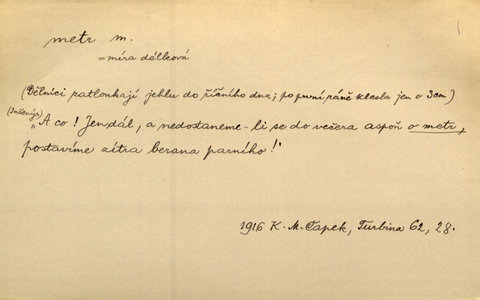 metr m.
= míra délková
(Dělníci zatloukají jehlu do říčního dna; po první ráně klesla jen o 3cm)
(Inženýr) "A co! Jen dál, a nedostaneme-li se do večera aspoň o metr,
postavíme zítra berana parního!"
1916 K. M. Čapek, Turbina 62, 28.